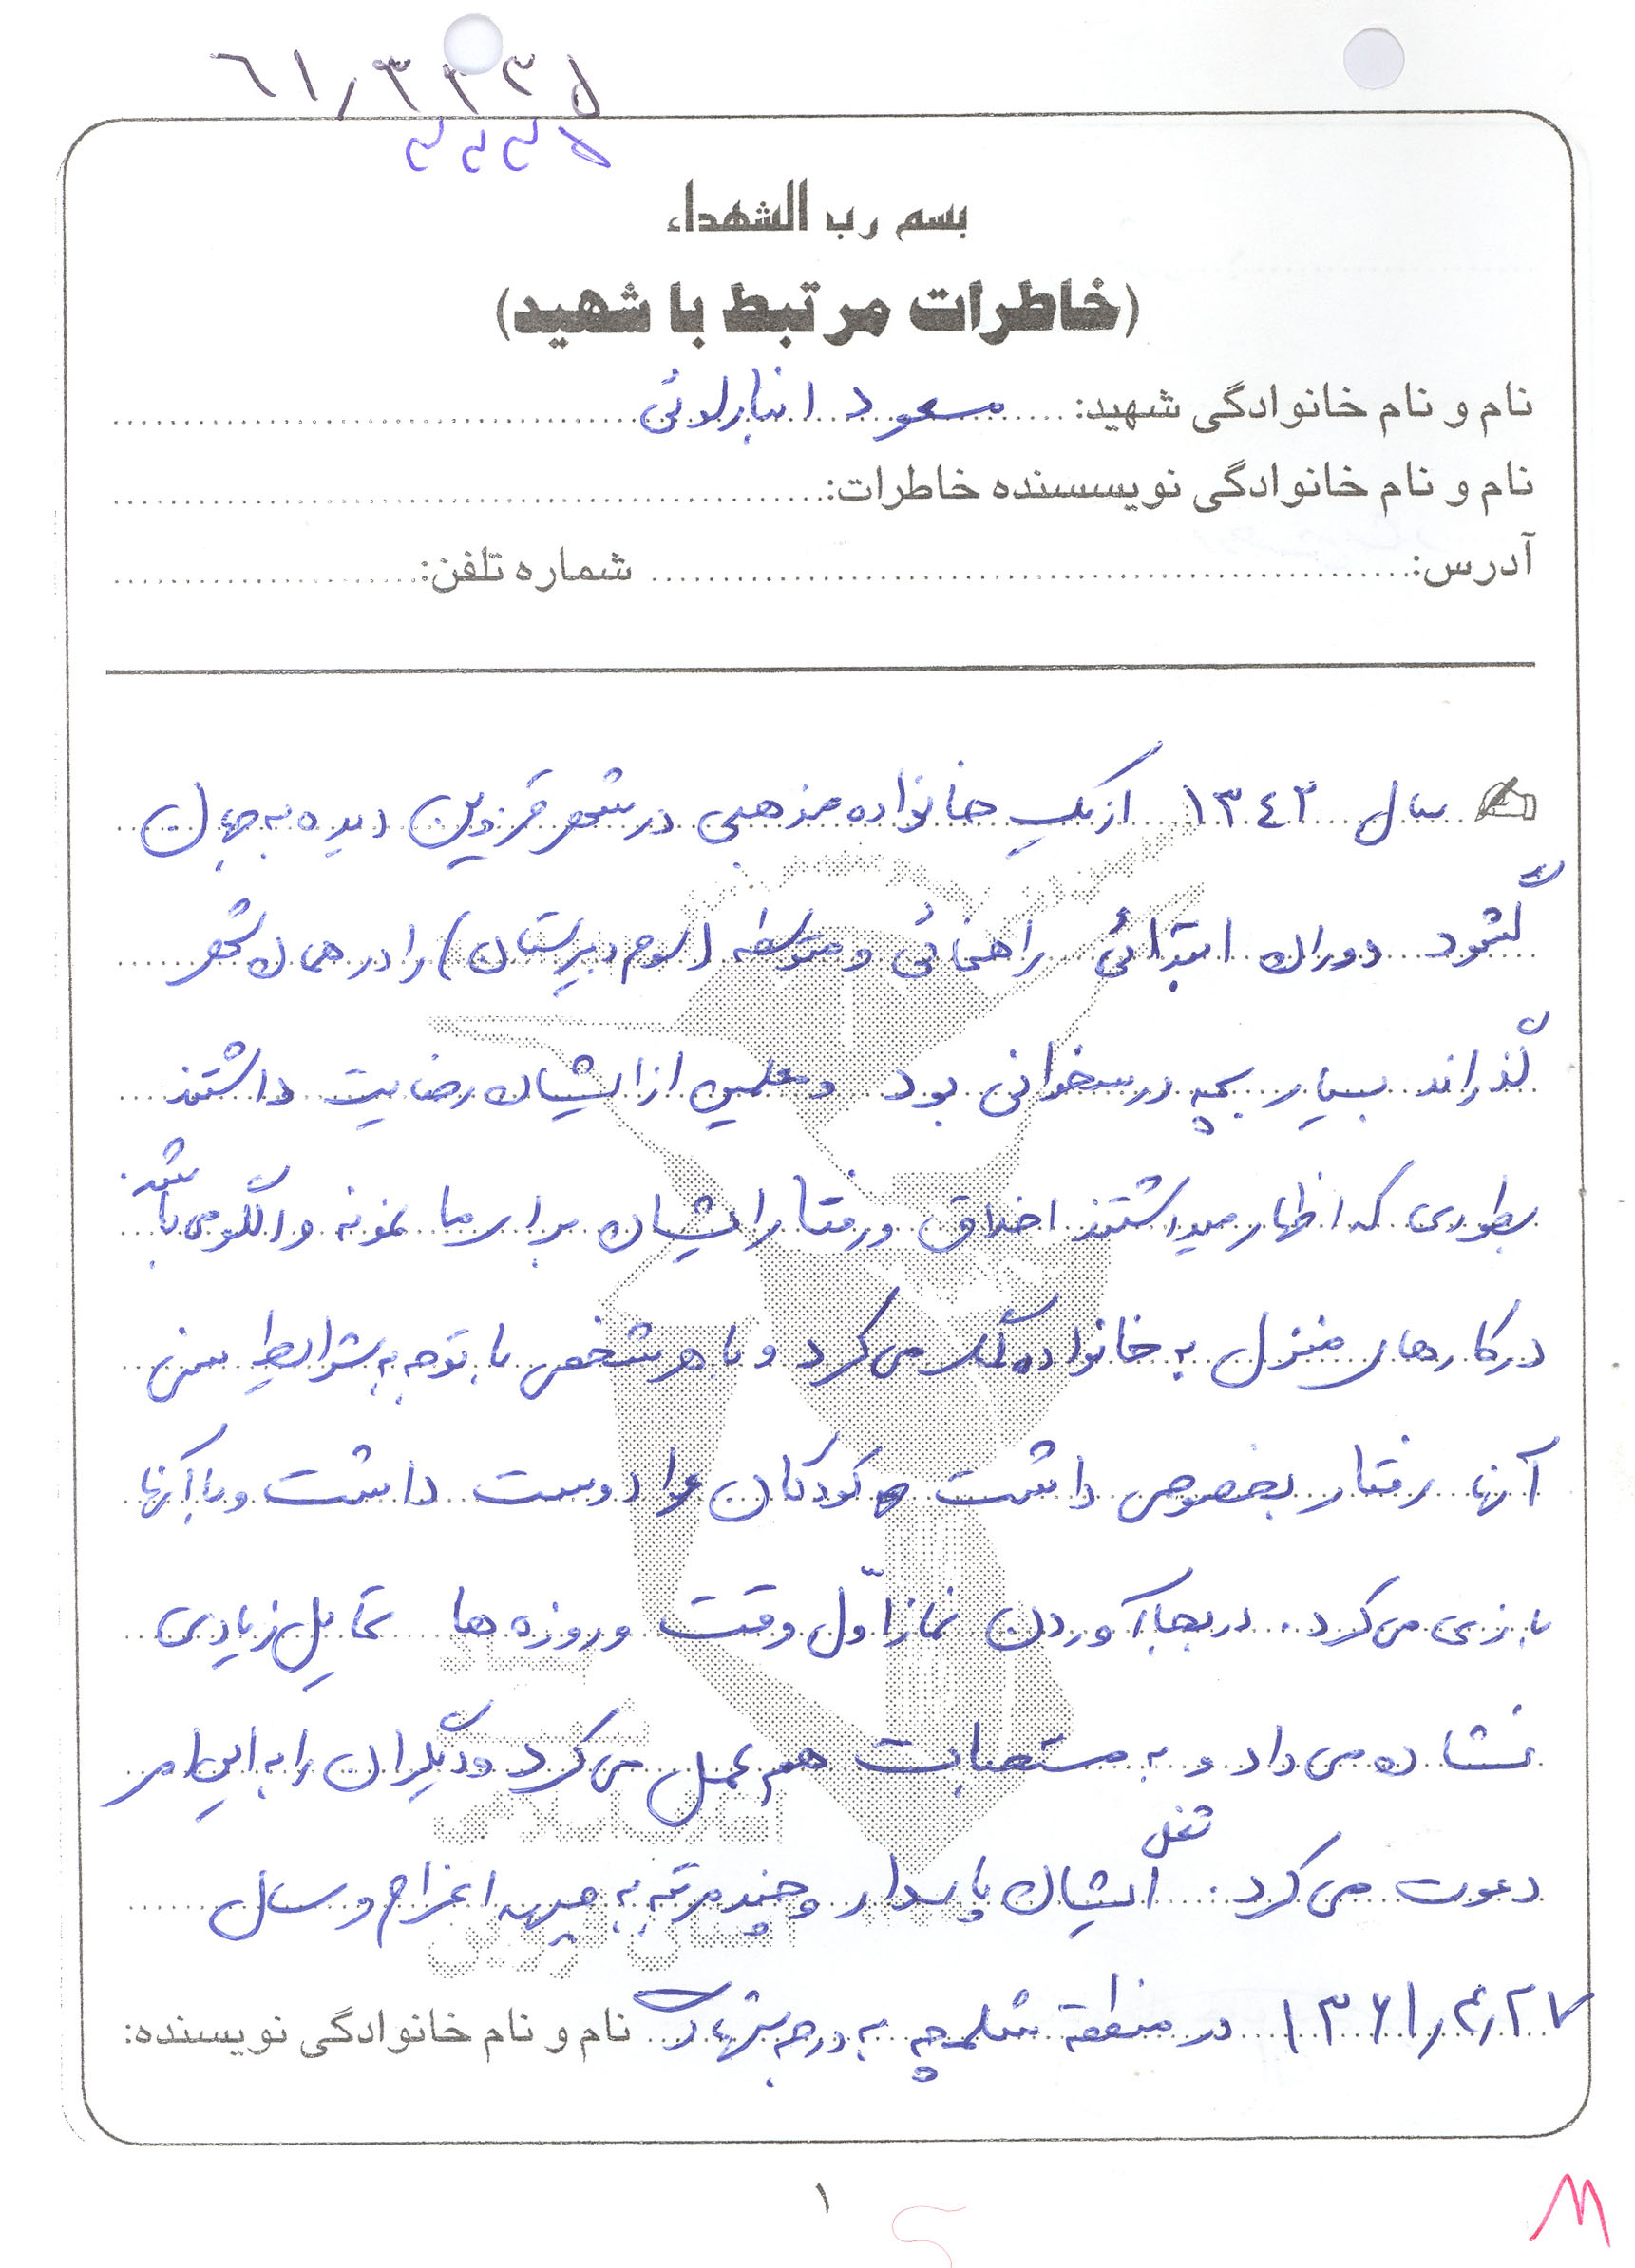 ٦١٫٣٣٣٥
٣٣٣٥
بسم رب الشهداء
(خاطرات مرتبط با شهید)
نام و نام خانوادگی شهید: مسعود انبارلوئی
نام و نام خانوادگی نویسنده خاطرات:
آدرس: شماره تلفن:
سال ١٣٤٣ از یک خانواده مذهبی در شهر قزوین دیده به جهان
گشود دوران ابتدائی راهنمائی و متوسطه (سوم دبیرستان) را در همان شهر
گذراند بسیار بچه درسخوانی بود و معلمین از ایشان رضایت داشتند
بطوری که اظهار میداشتند اخلاق و رفتار ایشان برای ما نمونه و الگو می باشد.
در کارهای منزل به خانواده کمک می کرد و با هر شخص با توجه به شرایط سنی
آنها رفتار بخصوص داشت کودکان را دوست داشت و با آنها
بازی می کرد. در بجا آوردن نماز اوّل وقت و روزه ها تمایل زیادی
نشان می داد و به مستحبات هم عمل می کرد و دیگران را به این امر
دعوت می کرد. شغل ایشان پاسدار و چند مرتبه به جبهه اعزام و سال
١٣٦١٫٤٫٢٧ در منطقه شلمچه به درجه شهادت نام و نام خانوادگی نویسنده:
بنیاد
شهید
انقلاب اسلامی
استان قزوین
١